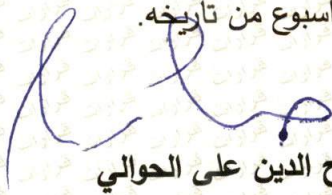 اسبوع من تاريخه.
ح الدين على الحوالي